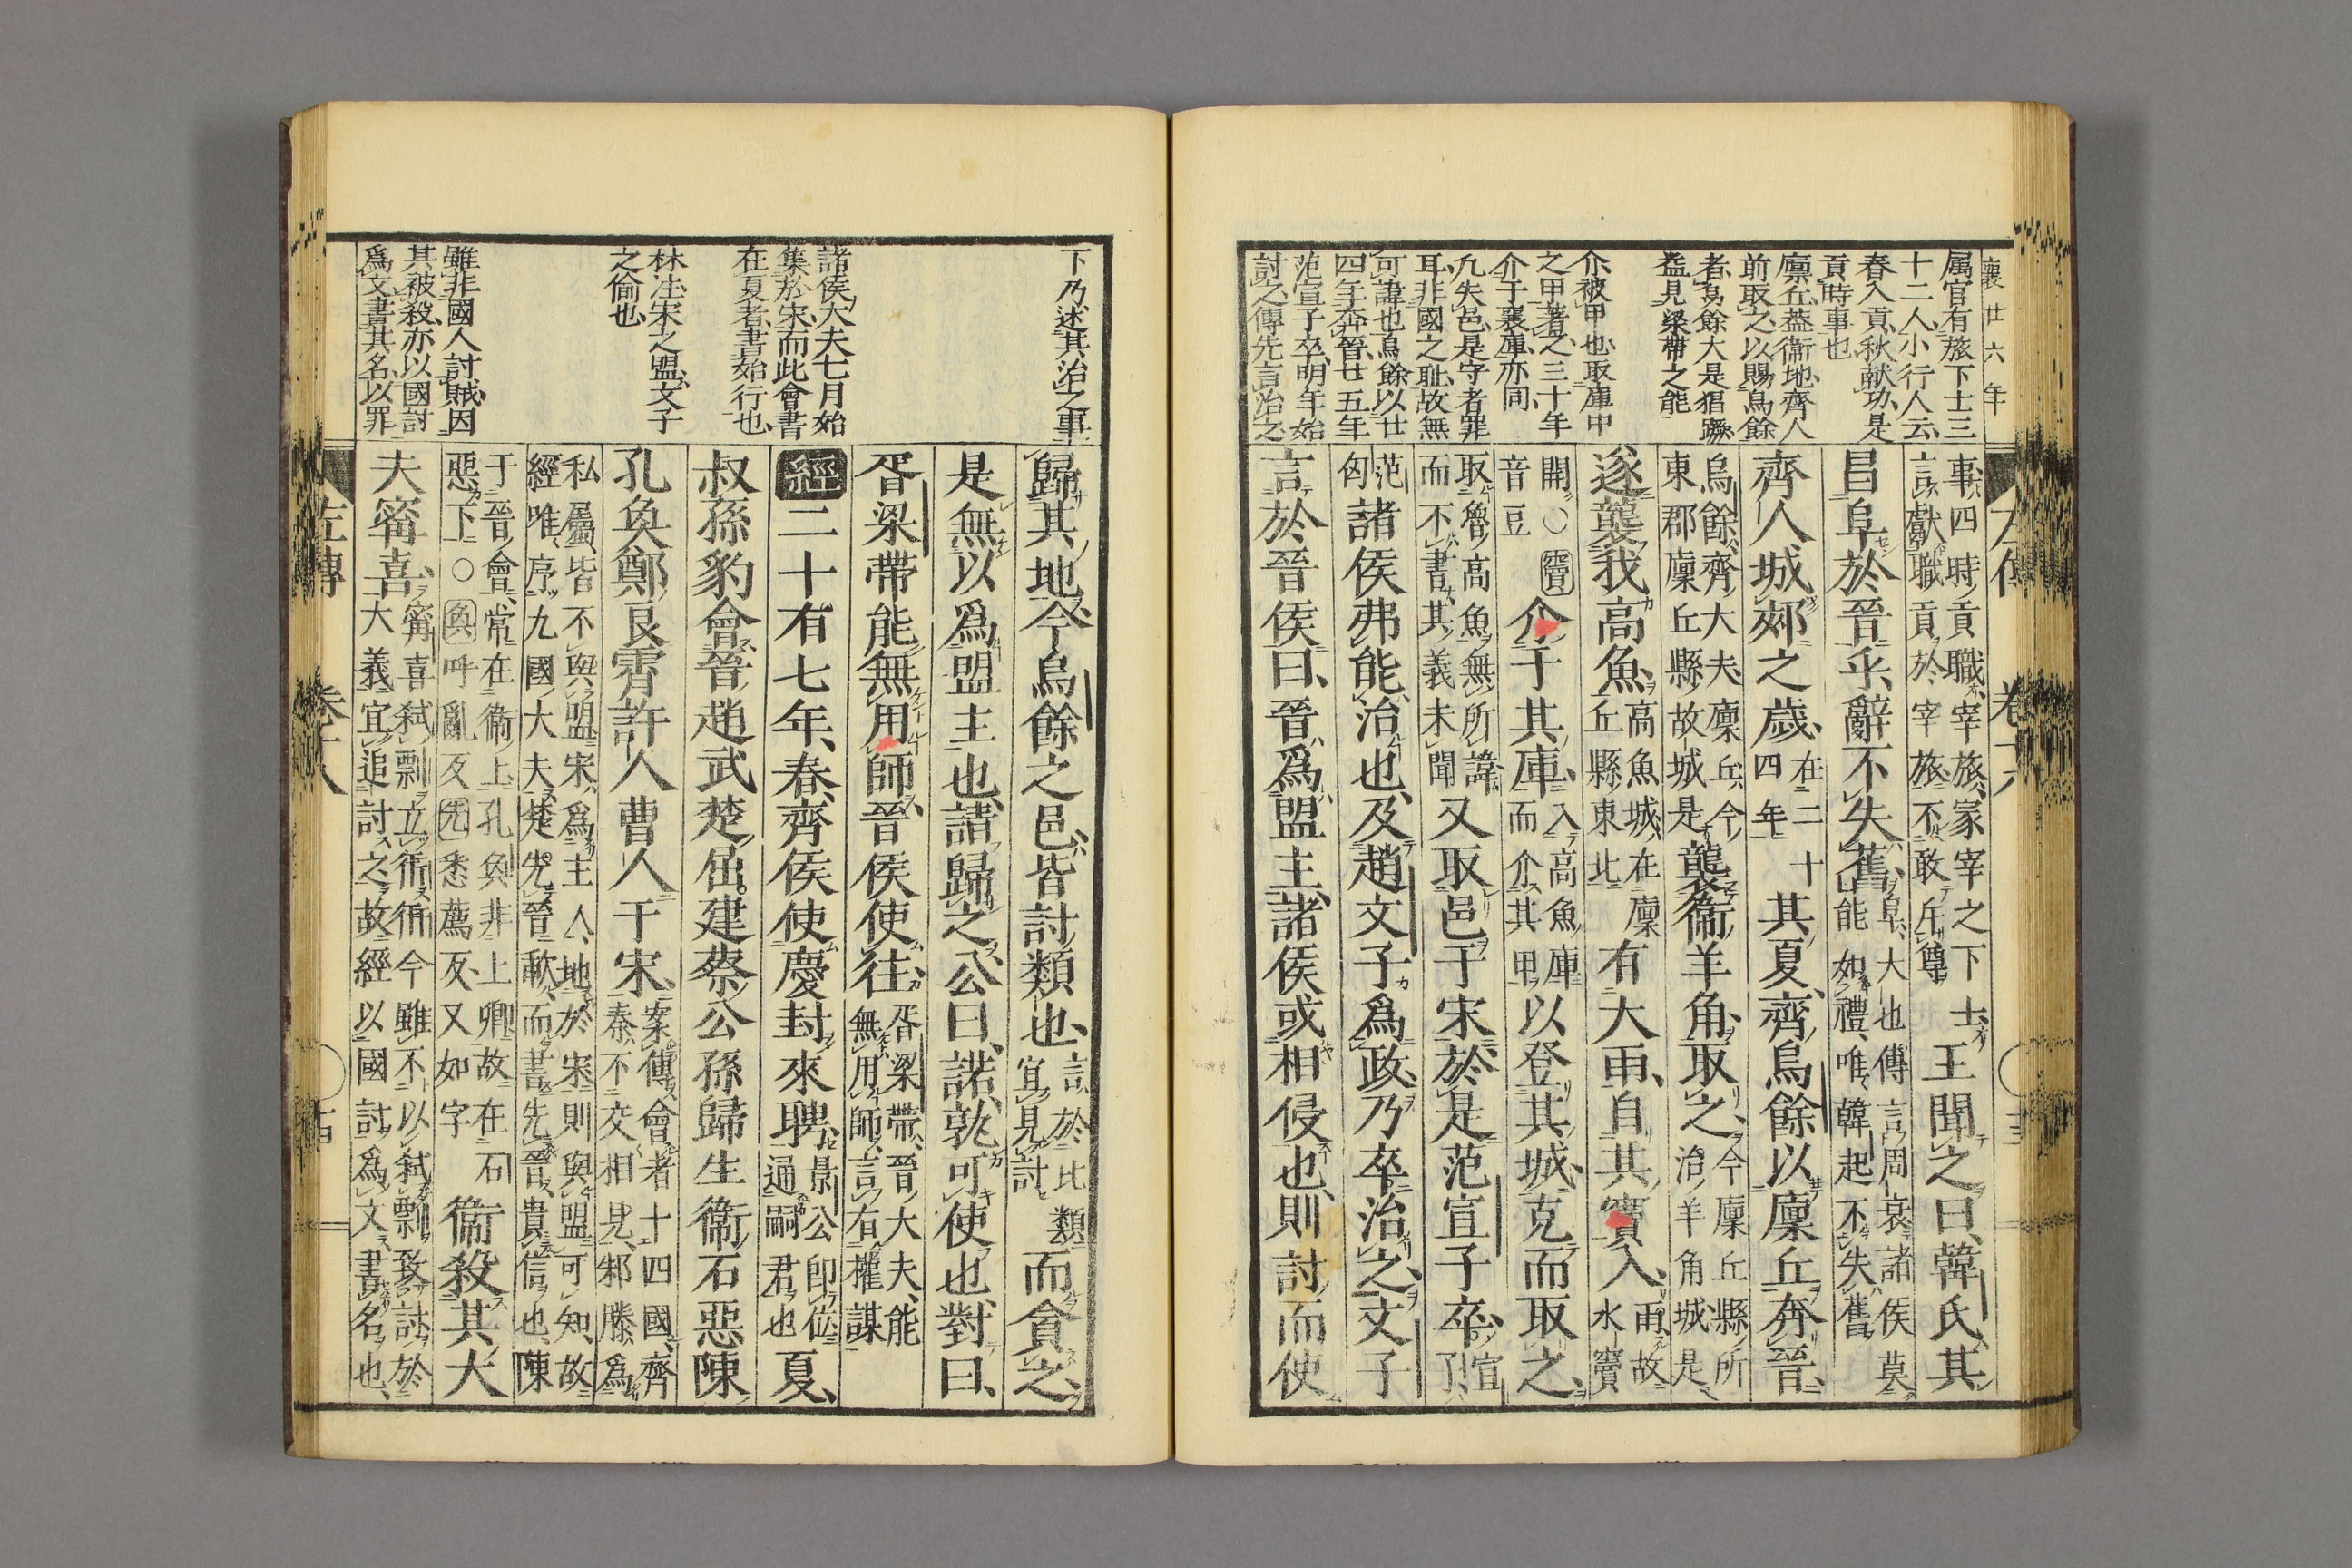 襄廿六年
属官有旅下士三
十二人小行人云
春入貢秋献功是
貢時事也
廩丘葢衞地齊人
前取之以賜烏餘
者烏餘大是猖蹶
益見梁帶之能
介被甲也取庫中
之甲著之三十年
介于襄庫亦同
凡失邑是守者罪
耳非國之耻故無
可諱也烏餘以廿
四年奔晉廿五年
范宣子卒明年始
討之傳先言治之
事四時貢職宰旅家宰之下士
言獻職貢於宰旅不敢斥尊
王聞之曰韓氏其
昌阜於晉乎辭不失舊
阜大也傳言周衰諸侯莫
能如禮唯韓起不失舊
齊人城郟之歲
在二十
四年
其夏齊烏餘以廩丘奔晉
烏餘齊大夫廩丘今
東郡廩丘縣故城是
襲衞羊角取之
今廩丘縣所
治羊角城是
遂襲我高魚
高魚城在廩
丘縣東北
有大雨自其竇入
雨故
水竇
開○竇
音豆
介于其庫
入高魚庫
而介其甲
以登其城克而取之
取魯高魚無所諱
而不書其義未聞
又取邑于宋於是范宣子卒
宣
子
范
匄
諸侯弗能治也及趙文子爲政乃卒治之文子
言於晉侯曰晉爲盟主諸侯或相侵也則討而使
下乃述其治之事
諸侯大夫七月始
集於宋而此會書
在夏者書始行也
林注宋之盟文子
之偷也
雖非國人討賊因
其被殺亦以國討
爲文書其名以罪
歸其地今烏餘之邑皆討類也
言於比類
宜見討
而貪之
是無以爲盟主也請歸之公曰諾孰可使也對曰
胥梁帶能無用師晉侯使往
胥梁帶晉大夫能
無用師言有權謀
經二十有七年春齊侯使慶封來聘
景公卽位
通嗣君也
夏
叔孫豹會晉趙武楚屈建蔡公孫歸生衞石惡陳
孔奐鄭良霄許人曹人于宋
案傳會者十四國齊
秦不交相見邾滕爲
私屬皆不與盟宋爲主人地於宋則與盟可知故
經唯序九國大夫楚先晉歃而書先晉貴信也陳
于晉會常在衞上孔奐非上卿故在石
惡下○奐呼亂反先悉薦反又如字
衞殺其大
夫甯喜
甯喜弑剽立衎衎今雖不以弑剽致討於
大義宜追討之故經以國討爲文書名也
左傳
卷十八